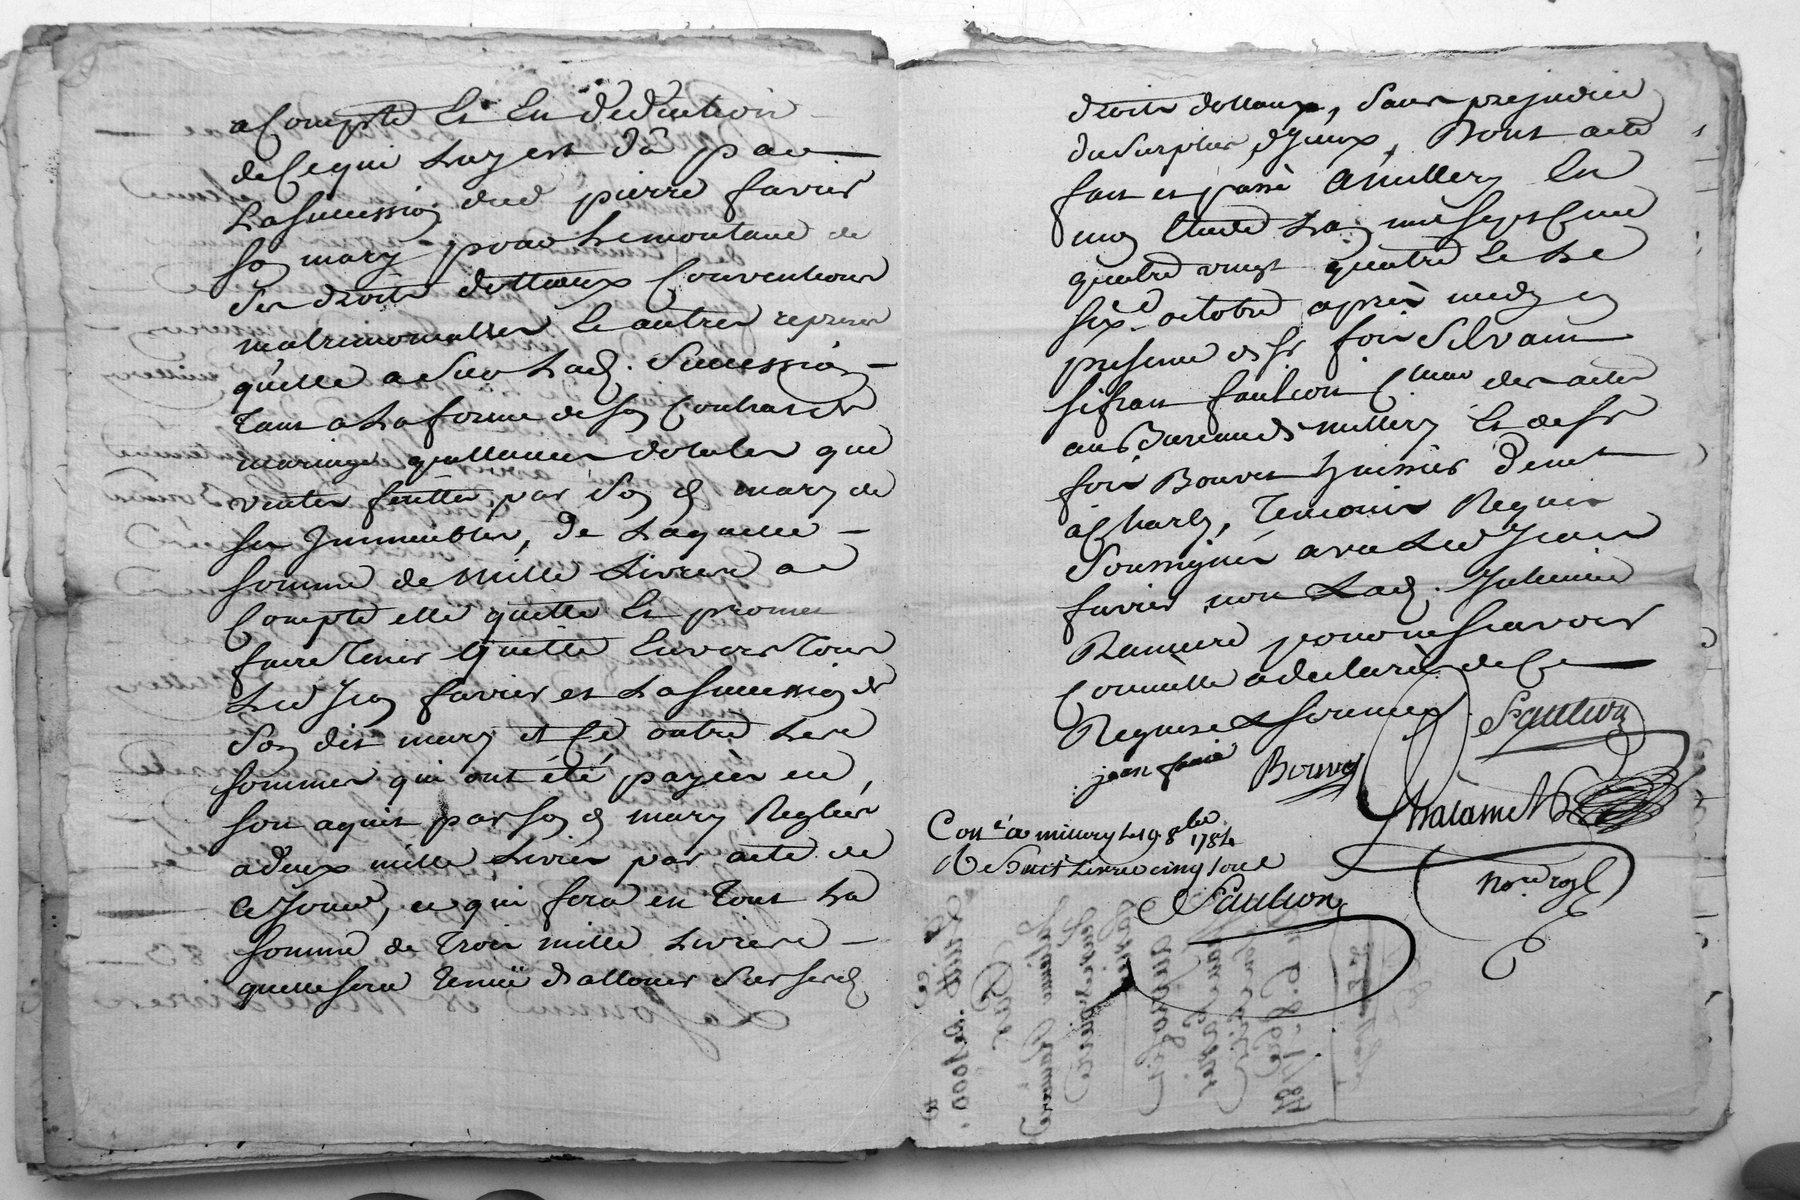 a Compte et en deduction
de Ce qui luy est dû par
la succession dud pierre favier
son mary pour le montant de
ses droits dottaux Conventions
matrimonialles et autres reprises
qu'elle a sur lad. Succession
tant a la forme de son Contrat de
mariage quittances dotales que
ventes faittes par son d mary de
ses Immeubles, de laquelle
somme de mille livres a
Compte elle quitte et promet
faire tenir quitte envers tous
led Jean favier et la succession de
son dit mary et Ce outre les
sommes qui ont été payées en
son aquit par son d mary Reglées
a deux mille livres par acte de
Ce Jour, ce qui fera en tout la
somme de trois mille livres
quelle sera tenuë d'allouer sur sesd
droits dottaux, sans prejudice
du surplus d'yceux, Dont acte
fait et passé a millery en
mon Etude L'an mil sept Cent
quatre vingt quatre le
six octobre après midy en
presence de sr foix Silvain
faulcon Cmis des actes
au Bureau de millery et de sr
foix Bouvet huissier demt
à Charly, temoins Requis
Soussignés avec led Jean
favier non lad. Julienne
pour ne sçavoir
Comme elle a declaré de Ce
Requise & sommée
Faulcon
jean favié Bouvet
thalamet
nore royl
Con.lé a millery le 19 8bre 1784
R de huit livres cinq sous
Faulcon